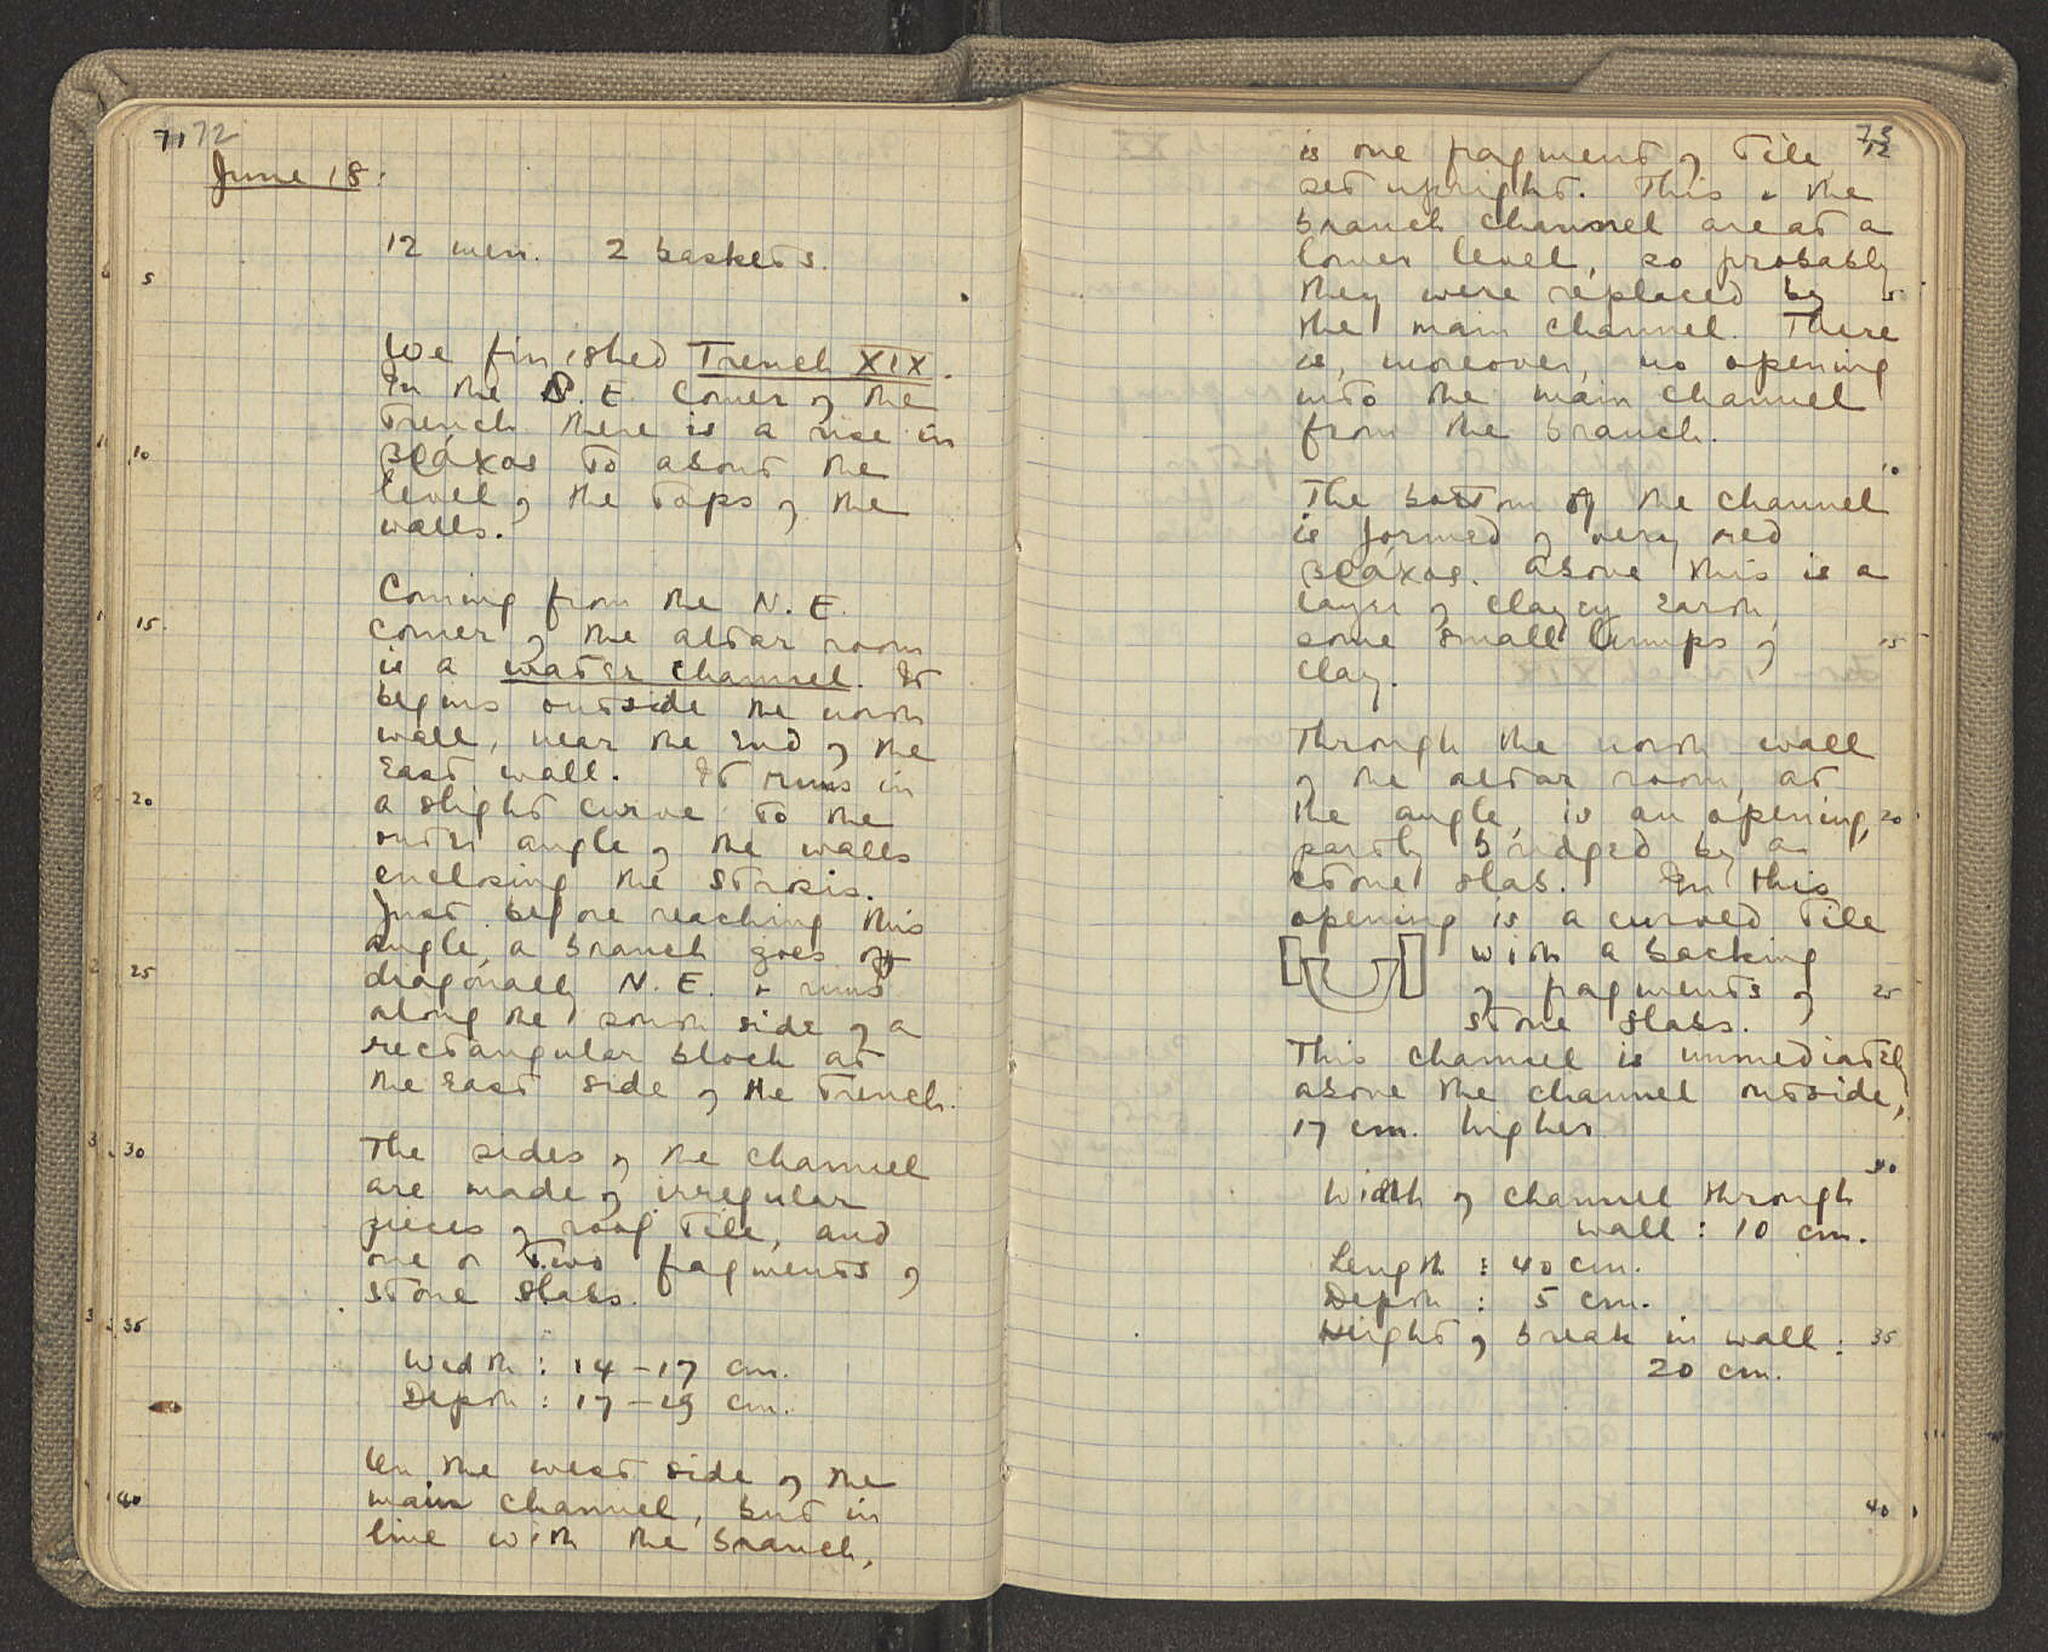 71 72
June 18:
12 men. 2 baskets.
5
We finished Trench XIX.
In the N.E. corner of the
trench there is a rise in
10
βράχος to about the
level of the tops of the
walls.
Coming from the N.E.
15.
corner of the altar room
is a water channel. It
begins outside the north
wall, near the end of the
east wall. It runs in
20
a slight curve to the
outer angle of the walls
enclosing the strosis.
Just before reaching this
angle, a branch goes off
25
diagonally N.E. + runs
along the south side of a
rectangular block at
the east side of the trench.
30
The sides of the channel
are made of irregular
pieces of roof tile, and
one or two fragments of
stone slabs.
35
Width : 14 – 17 cm.
Depth : 17 – 19 cm.
On the west side of the
40
main channel, but in
line with the branch,
73
is one fragment of tile
set upright. This + the
branch channel are at a
lower level, so probably
they were replaced by
5
the main channel. There
is, moreover, no opening
into the main channel
from the branch.
10
The bottom of the channel
is formed of very red
βράχος. Above this is a
layer of clayey earth,
some small lumps of
15
clay.
Through the north wall
of the altar room, at
the angle, is an opening,
20
partly bridged by a
stone slab. In this
opening is a curved tile
with a backing
of fragments of
25
stone slabs.
This channel is immediately
above the channel outside,
17 cm. higher
30
Width of channel through
wall : 10 cm.
Length : 40 cm.
Depth : 5 cm.
Height of break in wall :
35
20 cm.
40